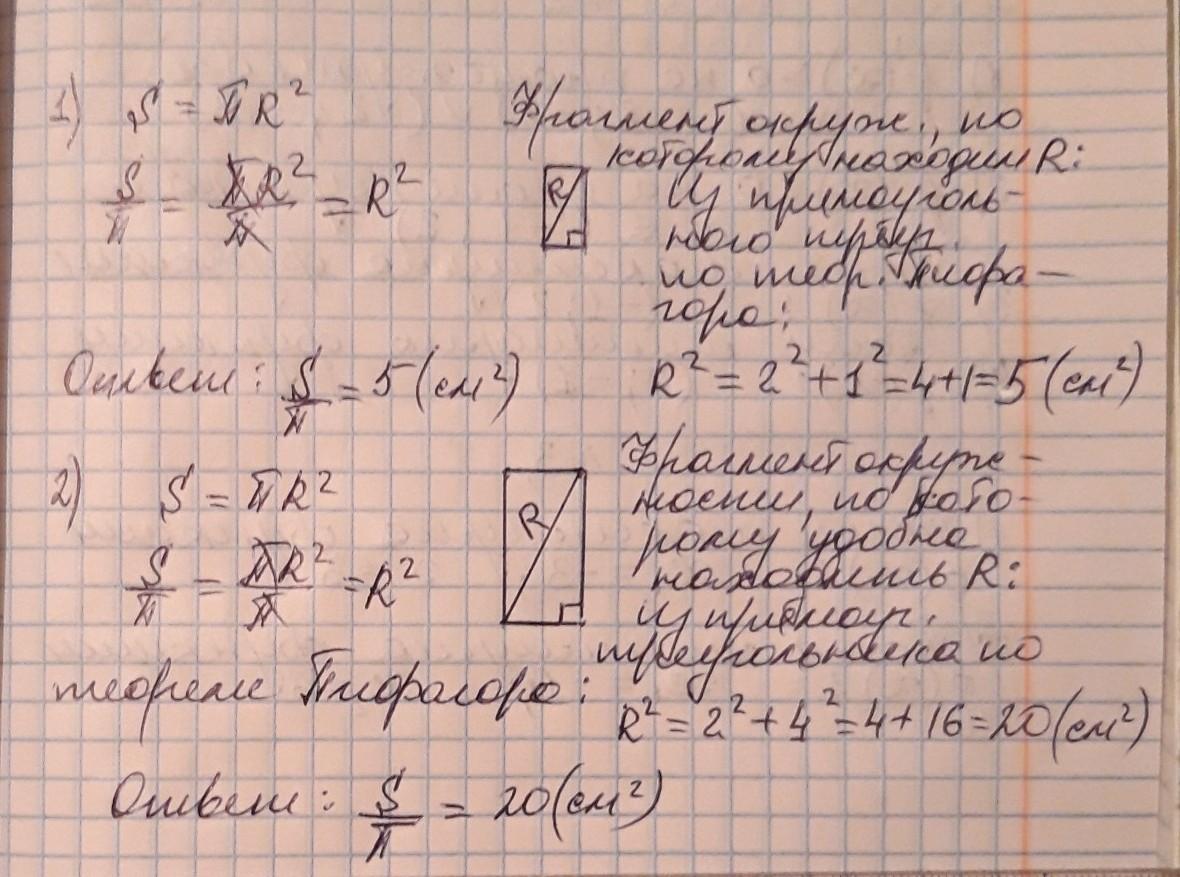 1) S = πR²
Фрагмент окруж., по
которому находим R:
S/π = πR²/π = R²
R
Из прямоуголь-
ного треуг.
по теор. Пифа-
гора:
R² = 2² + 1² = 4+1 = 5 (см²)
Ответ: S/π = 5 (см²)
2) S = πR²
S/π = πR²/π = R²
R
Фрагмент окруж-
ности, по кото-
рому удобна
находить R:
Из прямоуг.
треугольника по
теореме Пифагора:
R² = 2² + 4² = 4 + 16 = 20 (см²)
Ответ: S/π = 20 (см²)